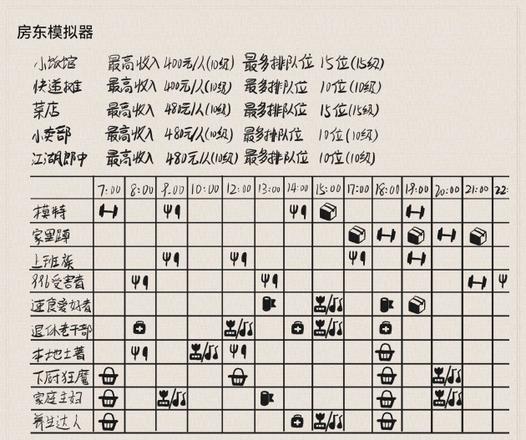 房东模拟器
小饭馆 最高收入 400元/人(10级) 最多排队位 15位(15级)
快递摊 最高收入 400元/人(10级) 最多排队位 10位(10级)
菜店 最高收入 480元/人(10级) 最多排队位 15位(15级)
小卖部 最高收入 480元/人(10级) 最多排队位 10位(10级)
江湖郎中 最高收入 480元/人(10级) 最多排队位 10位(10级)
7:00 8:00 9:00 10:00 12:00 13:00 14:00 15:00 17:00 18:00 19:00 20:00 21:00 22:
模特
家里蹲
上班族
996受害者
逛食爱好者
退休老干部
本地土著
下厨狂魔
家庭主妇
养生达人